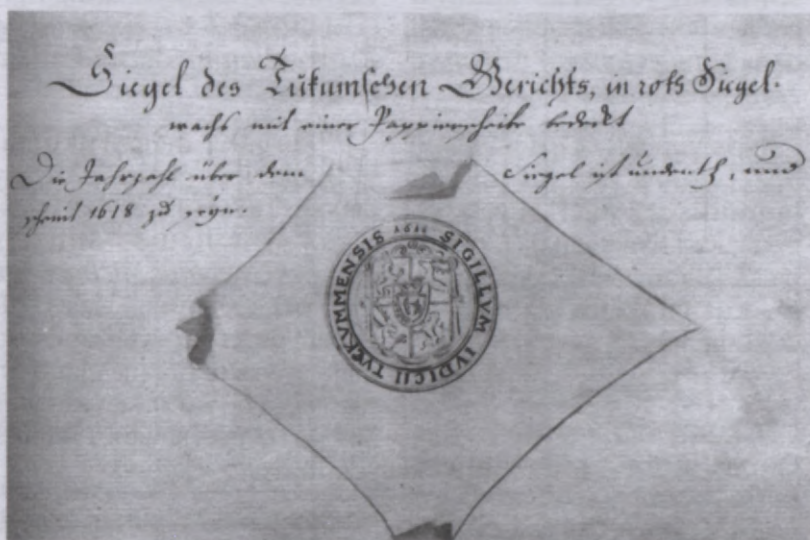 Siegel des Tukumschen Gerichts, in roth Siegel-
wachs mit einer Pappierscheibe bedeckt
Die Jahrzahl über dem Siegel ist undeutl., und
scheint 1618 zu seyn.
SIGILLVM IVDICII TVCKVMMENSIS